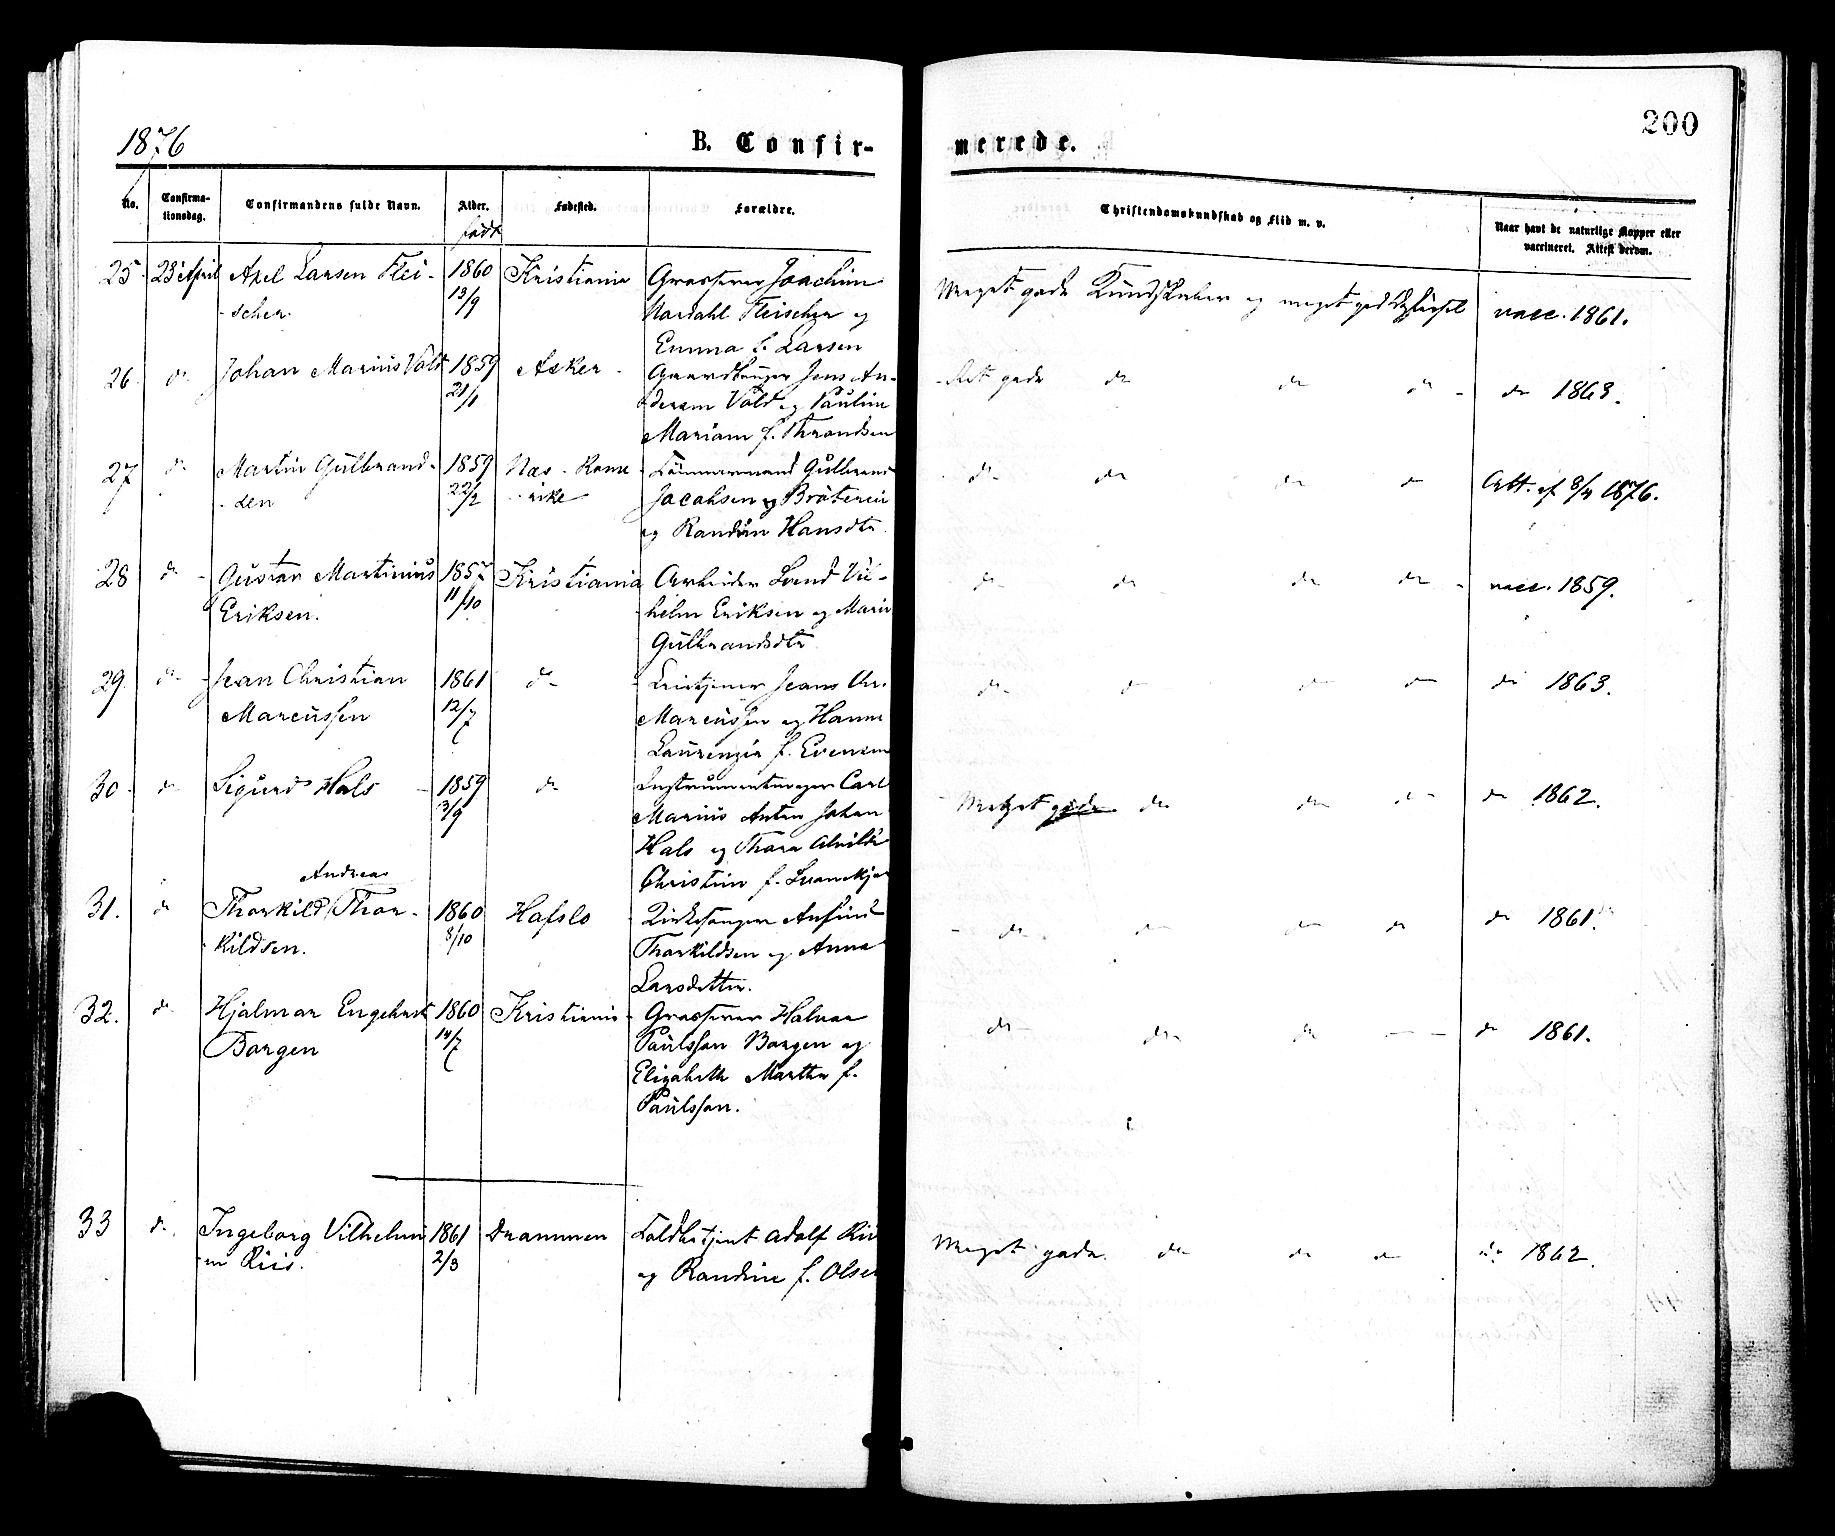 1876
B. Confir-
merede.
200
No.
Confirma-
tionsdag.
Confirmandens fulde Navn.
Alder.
født
Fødested.
Forældre.
Christendomskundskab og Flid m. v.
Naar havt de naturlige Kopper eller
vaccineret. Attest derom.
25. 23 April Axel Larsen Flei- 1860 Kristiania Grosserer Joachim Meget gode Kundskaber og meget god vacc. 1861.
scher. 13/9 Fleischer og
Emma f. Larsen
26. do Johan Marius Vold 1859 Asker Gaardbruger Jens An- Ret gode do do do do 1863.
21/1 dersen Vold og Pauline
Mariane f. Throndsen
27 do Martin Gulbrand- 1859 Næs - Rome Tømmermand Gulbrand do do do do Att. af 8/4 1876.
sen 22/2 rike Jacobsen og
og Randine Hansdtr
28 do Gustav Martinius 1857 Kristiania Arbeider Vil- do do do do vacc. 1859.
Eriksen. 11/10 helm Eriksen og Marie
Gulbrandsdtr
29. do Jean Christian 1861 do Jeans Chr. do do do do do 1863.
Marcussen 12/7 Marcussen og Hanne
f. Evensen
30. do Sigurd Hals 1859 do Instrumentmager Carl Meget gode do do do do 1862.
3/9 Marius Anton Johan
Hals og Thora Alvilde
Christine f.
Andreas
31. do Thorkild Thor- 1860 Hafslo Kirkesanger Anfind do do do do do 1861.
kildsen. 8/10 Thorkildsen og Anna
Larsdatter.
32. do Hjalmar Engebret 1860 Kristiania Grosserer Halvor do do do do 1861.
Borgen 14/7 Paulsson Borgen og
Elizabeth Marthe f.
Paulsson.
33 do. Ingeborg Vilhelmi 1861 Drammen Toldbetjent Adolf Riis Meget gode do do do do 1862.
ne Riis. 2/3 og Randine f. Olsen